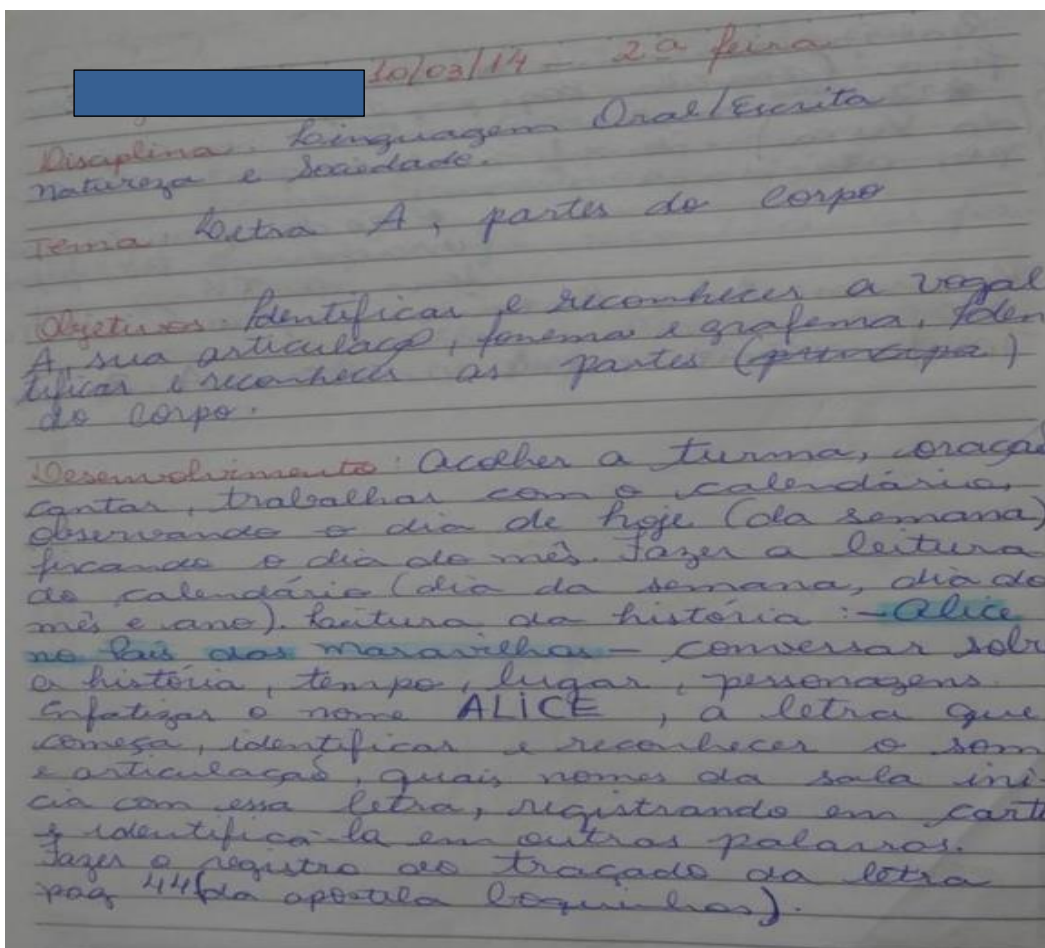 10/03/14 - 2ª feira
Disciplina: Linguagem Oral/Escrita
natureza e Sociedade.
Tema: Letra A, partes do corpo
Objetivos: Identificar e reconhecer a vogal
A, sua articulaçõ, fonema e grafema, Iden
tificar e reconhecer as partes (principa)
do corpo.
Desenvolvimento: Acolher a turma, oração
cantar, trabalhar com o calendário,
observando o dia de hoje (da semana)
ficando o dia do mês. Fazer a leitura
do calendário (dia da semana, dia do
mês e ano). Leitura da história: - Alice
no País das maravilhas - conversar sobr
a história, tempo, lugar, personagens.
Enfatizar o nome ALICE, a letra que
começa, identificar e reconhecer o som
e articulação, quais nomes da sala ini-
cia com essa letra, registrando em cart
e identificá-la em outras palavras.
Fazer o registro do traçado da letra
pag 44 (da apostila boquinhas).